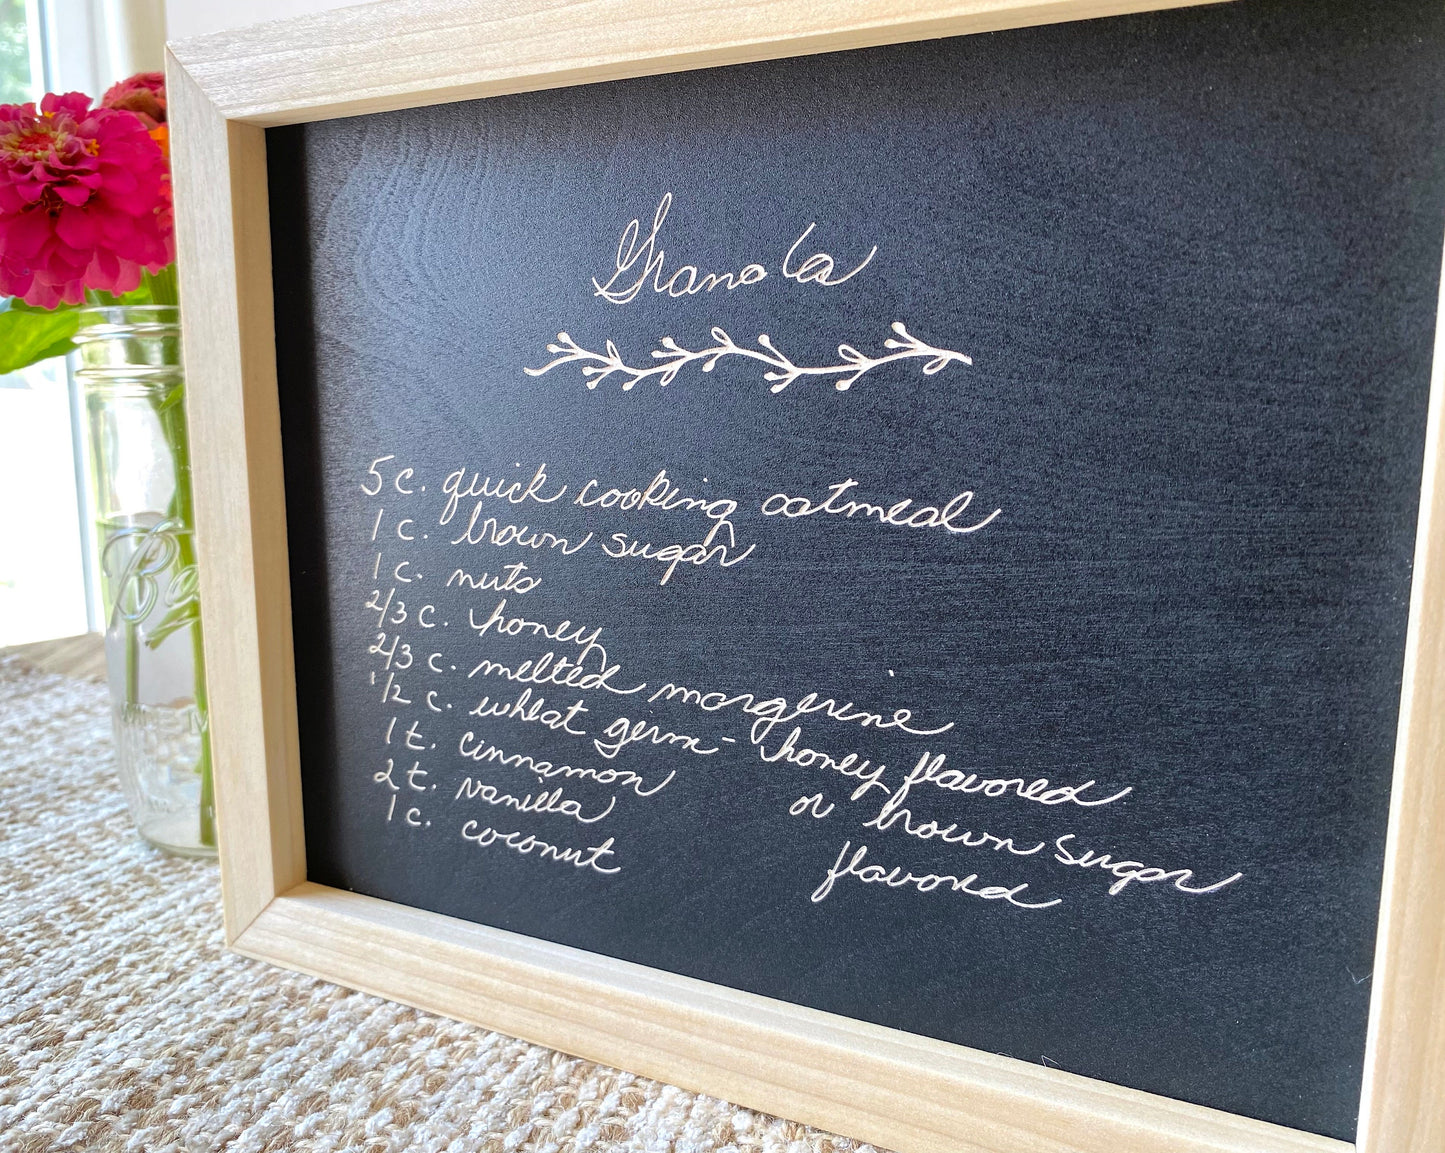 Granola
5 c. quick cooking oatmeal
1 c. brown sugar
1 c. nuts
2/3 c. honey
2/3 c. melted margerine
1/2 c. wheat germ - honey flavored
or brown sugar
flavored
1 t. cinnamon
2 t. vanilla
1 c. coconut
Ba